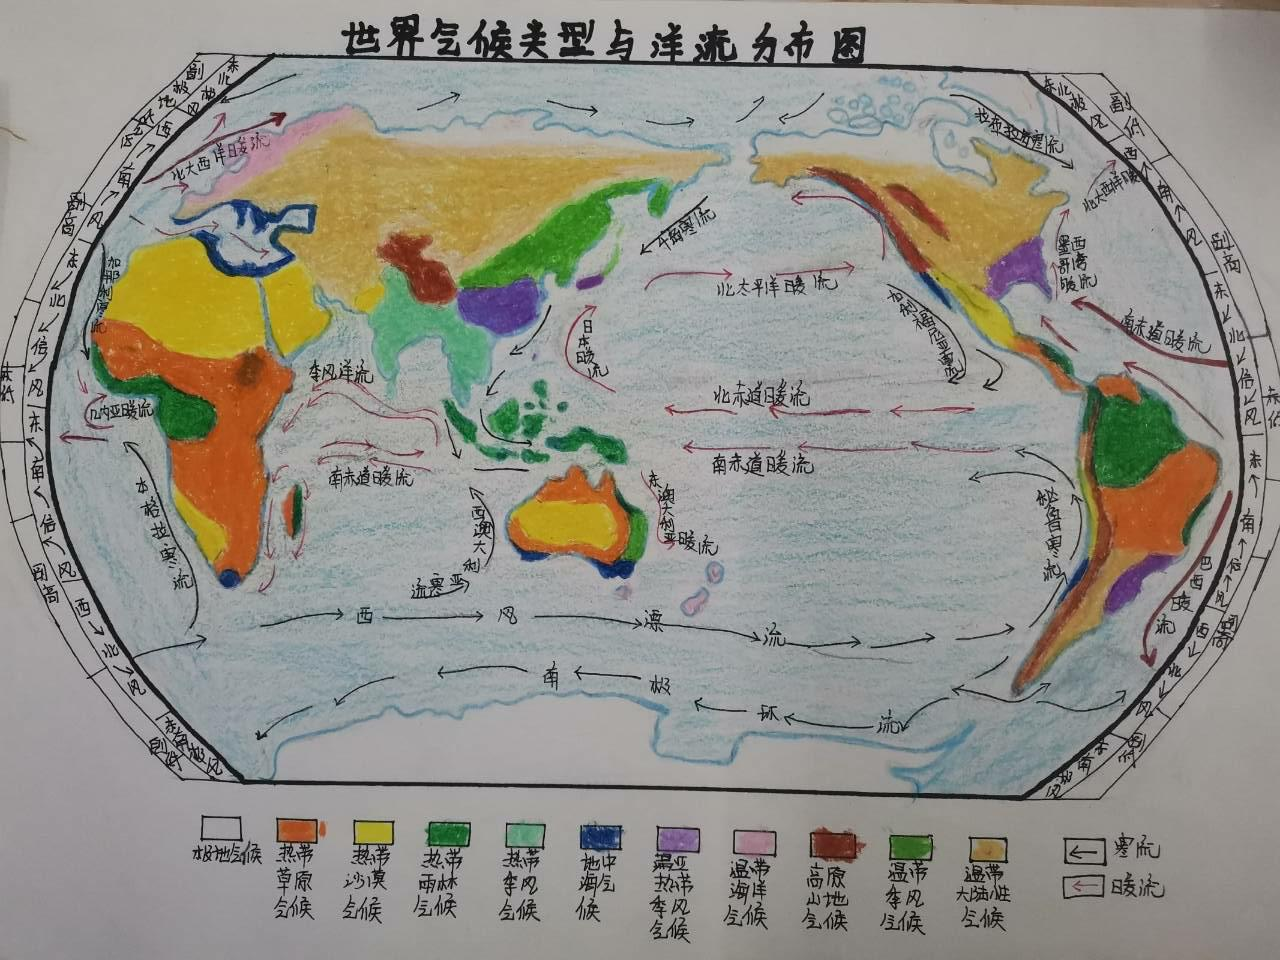 世界气候类型与洋流分布图
东北极风
副极地
西南风
副高
东北信风
赤低
东南信风
副高
西北风
副低
东南极风
东北极风
副低
西南风
副高
东北信风
赤低
东南信风
副高
西北风
副低
东南极风
北大西洋暖流
拉布拉多寒流
北大西洋暖
千岛寒流
墨西哥湾暖流
加那利寒流
北太平洋暖流
日本暖流
加利福尼亚寒流
南赤道暖流
季风洋流
北赤道暖流
几内亚暖流
南赤道暖流
南赤道暖流
本格拉寒流
西澳大利亚寒流
东澳大利亚暖流
秘鲁寒流
巴西暖流
西风漂流
南极环流
极地气候
热带草原气候
热带沙漠气候
热带雨林气候
热带季风气候
地中海气候
温亚热带季风气候
温带海洋气候
高原山地气候
温带季风气候
温带大陆性气候
寒流
暖流